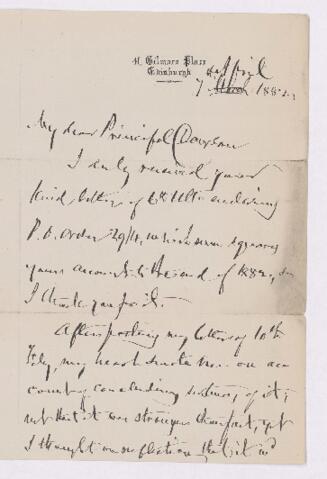 41 Gilmore Place
Edinburgh
7 April 1882
My dear Principal Dawson
I duly received your
kind letter of 6th Ulto enclosing
P.O. order 29/4, which sum squares
your account to the end of 1882, &
I thank you for it. —
After posting my letter of 10th
Feby, my heart smote me on account
concluding sentence of it,
not that it was stronger than fact, yet
I thought on reflection that it